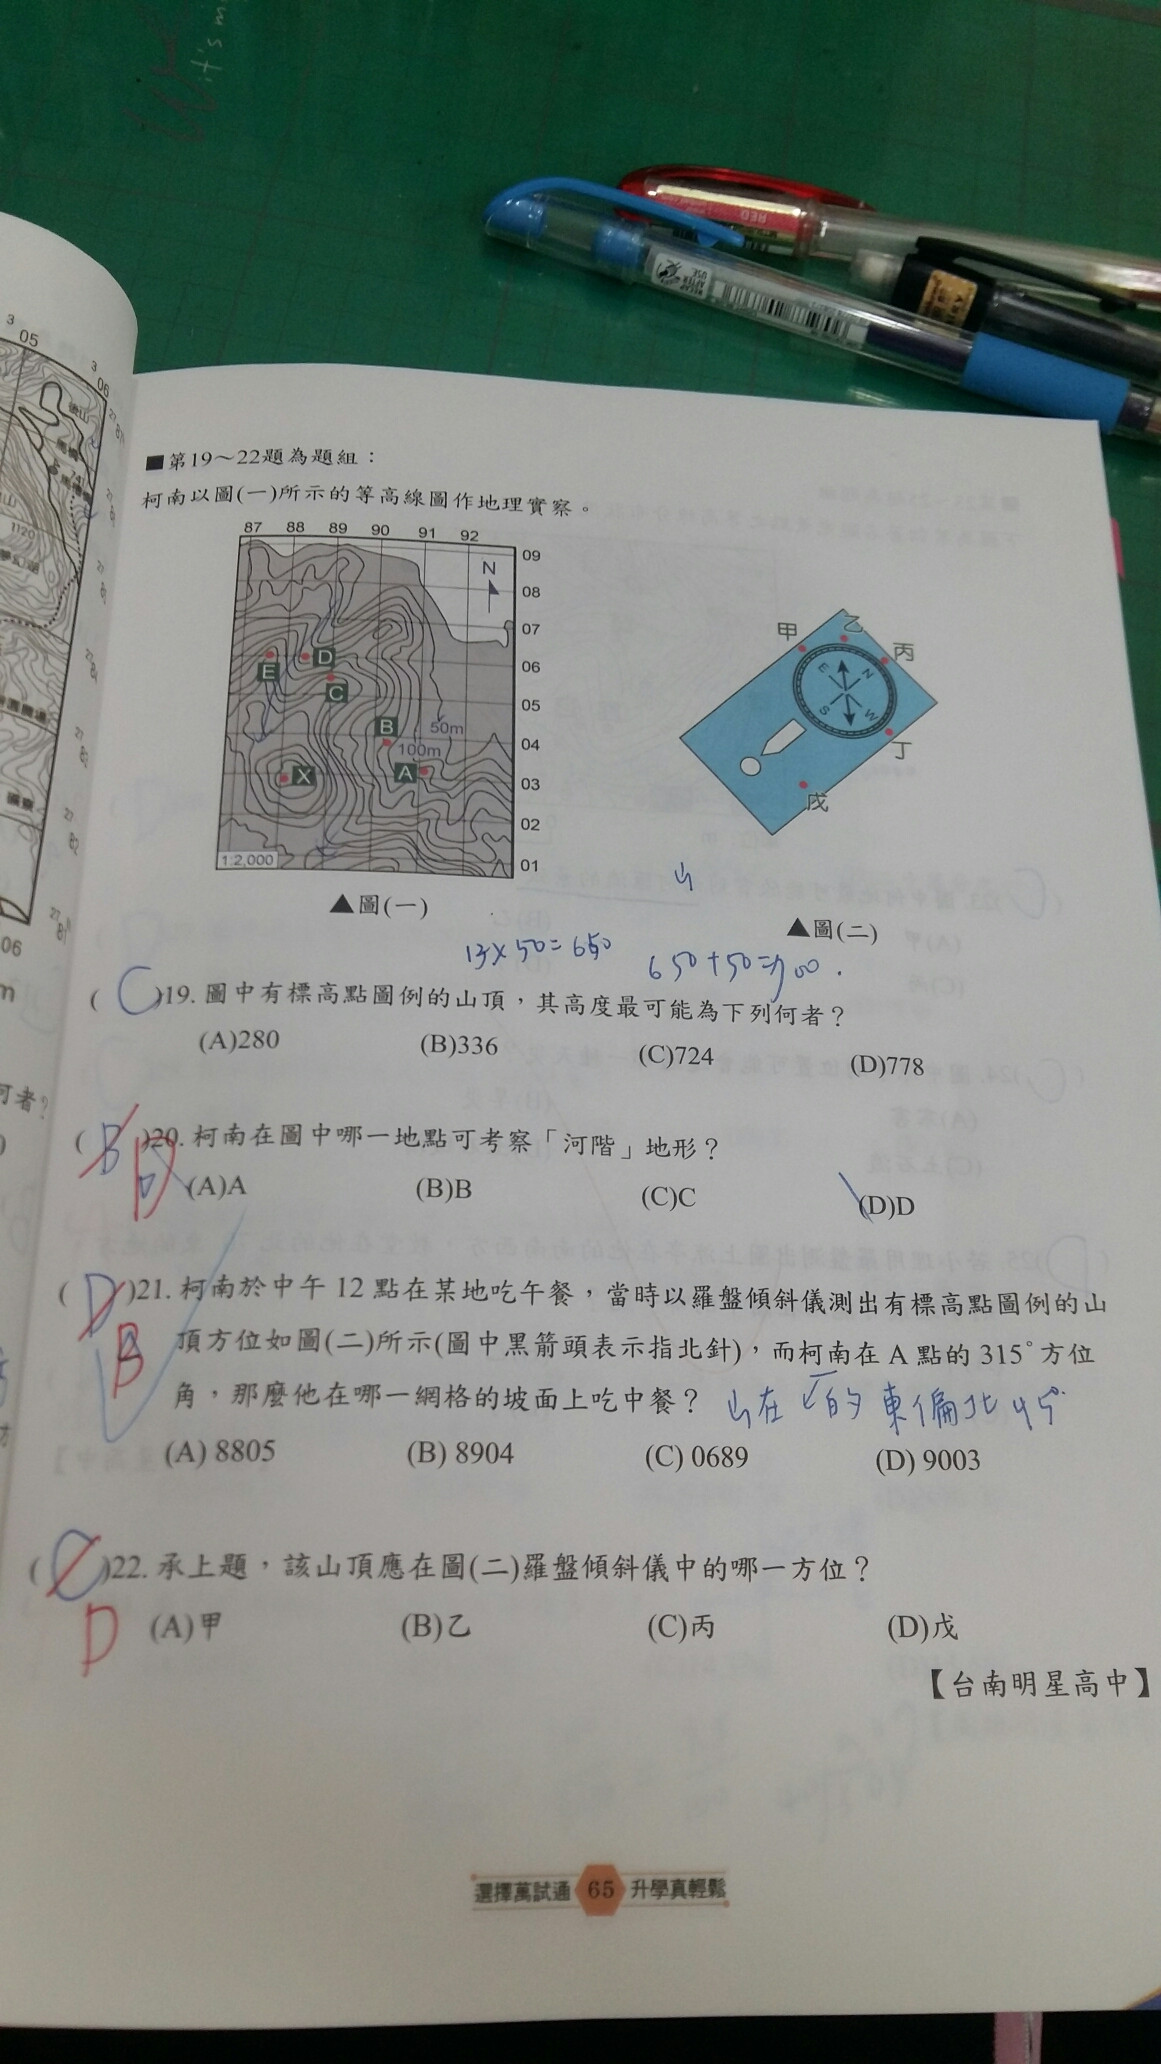 it's m
RED
05
06
741
1120
06
■第19～22題為題組：
柯南以圖(一)所示的等高線圖作地理實察。
87 88 89 90 91 92
09
08
07
06
05
04
03
02
01
N
E
D
C
B
50m
100m
A
X
1:2,000
▲圖(一)
甲
乙
丙
丁
戊
E
N
S
W
山
▲圖(二)
13x50=650
650+50=700.
( C )19. 圖中有標高點圖例的山頂，其高度最可能為下列何者？
(A)280 (B)336 (C)724 (D)778
( B D )20. 柯南在圖中哪一地點可考察「河階」地形？
(A)A (B)B (C)C (D)D
( D B )21. 柯南於中午 12 點在某地吃午餐，當時以羅盤傾斜儀測出有標高點圖例的山
頂方位如圖(二)所示(圖中黑箭頭表示指北針)，而柯南在 A 點的 315°方位
角，那麼他在哪一網格的坡面上吃中餐？
東偏北45°
(A) 8805 (B) 8904 (C) 0689 (D) 9003
( C )22. 承上題，該山頂應在圖(二)羅盤傾斜儀中的哪一方位？
D
(A)甲 (B)乙 (C)丙 (D)戊
【台南明星高中】
選擇萬試通 65 升學真輕鬆